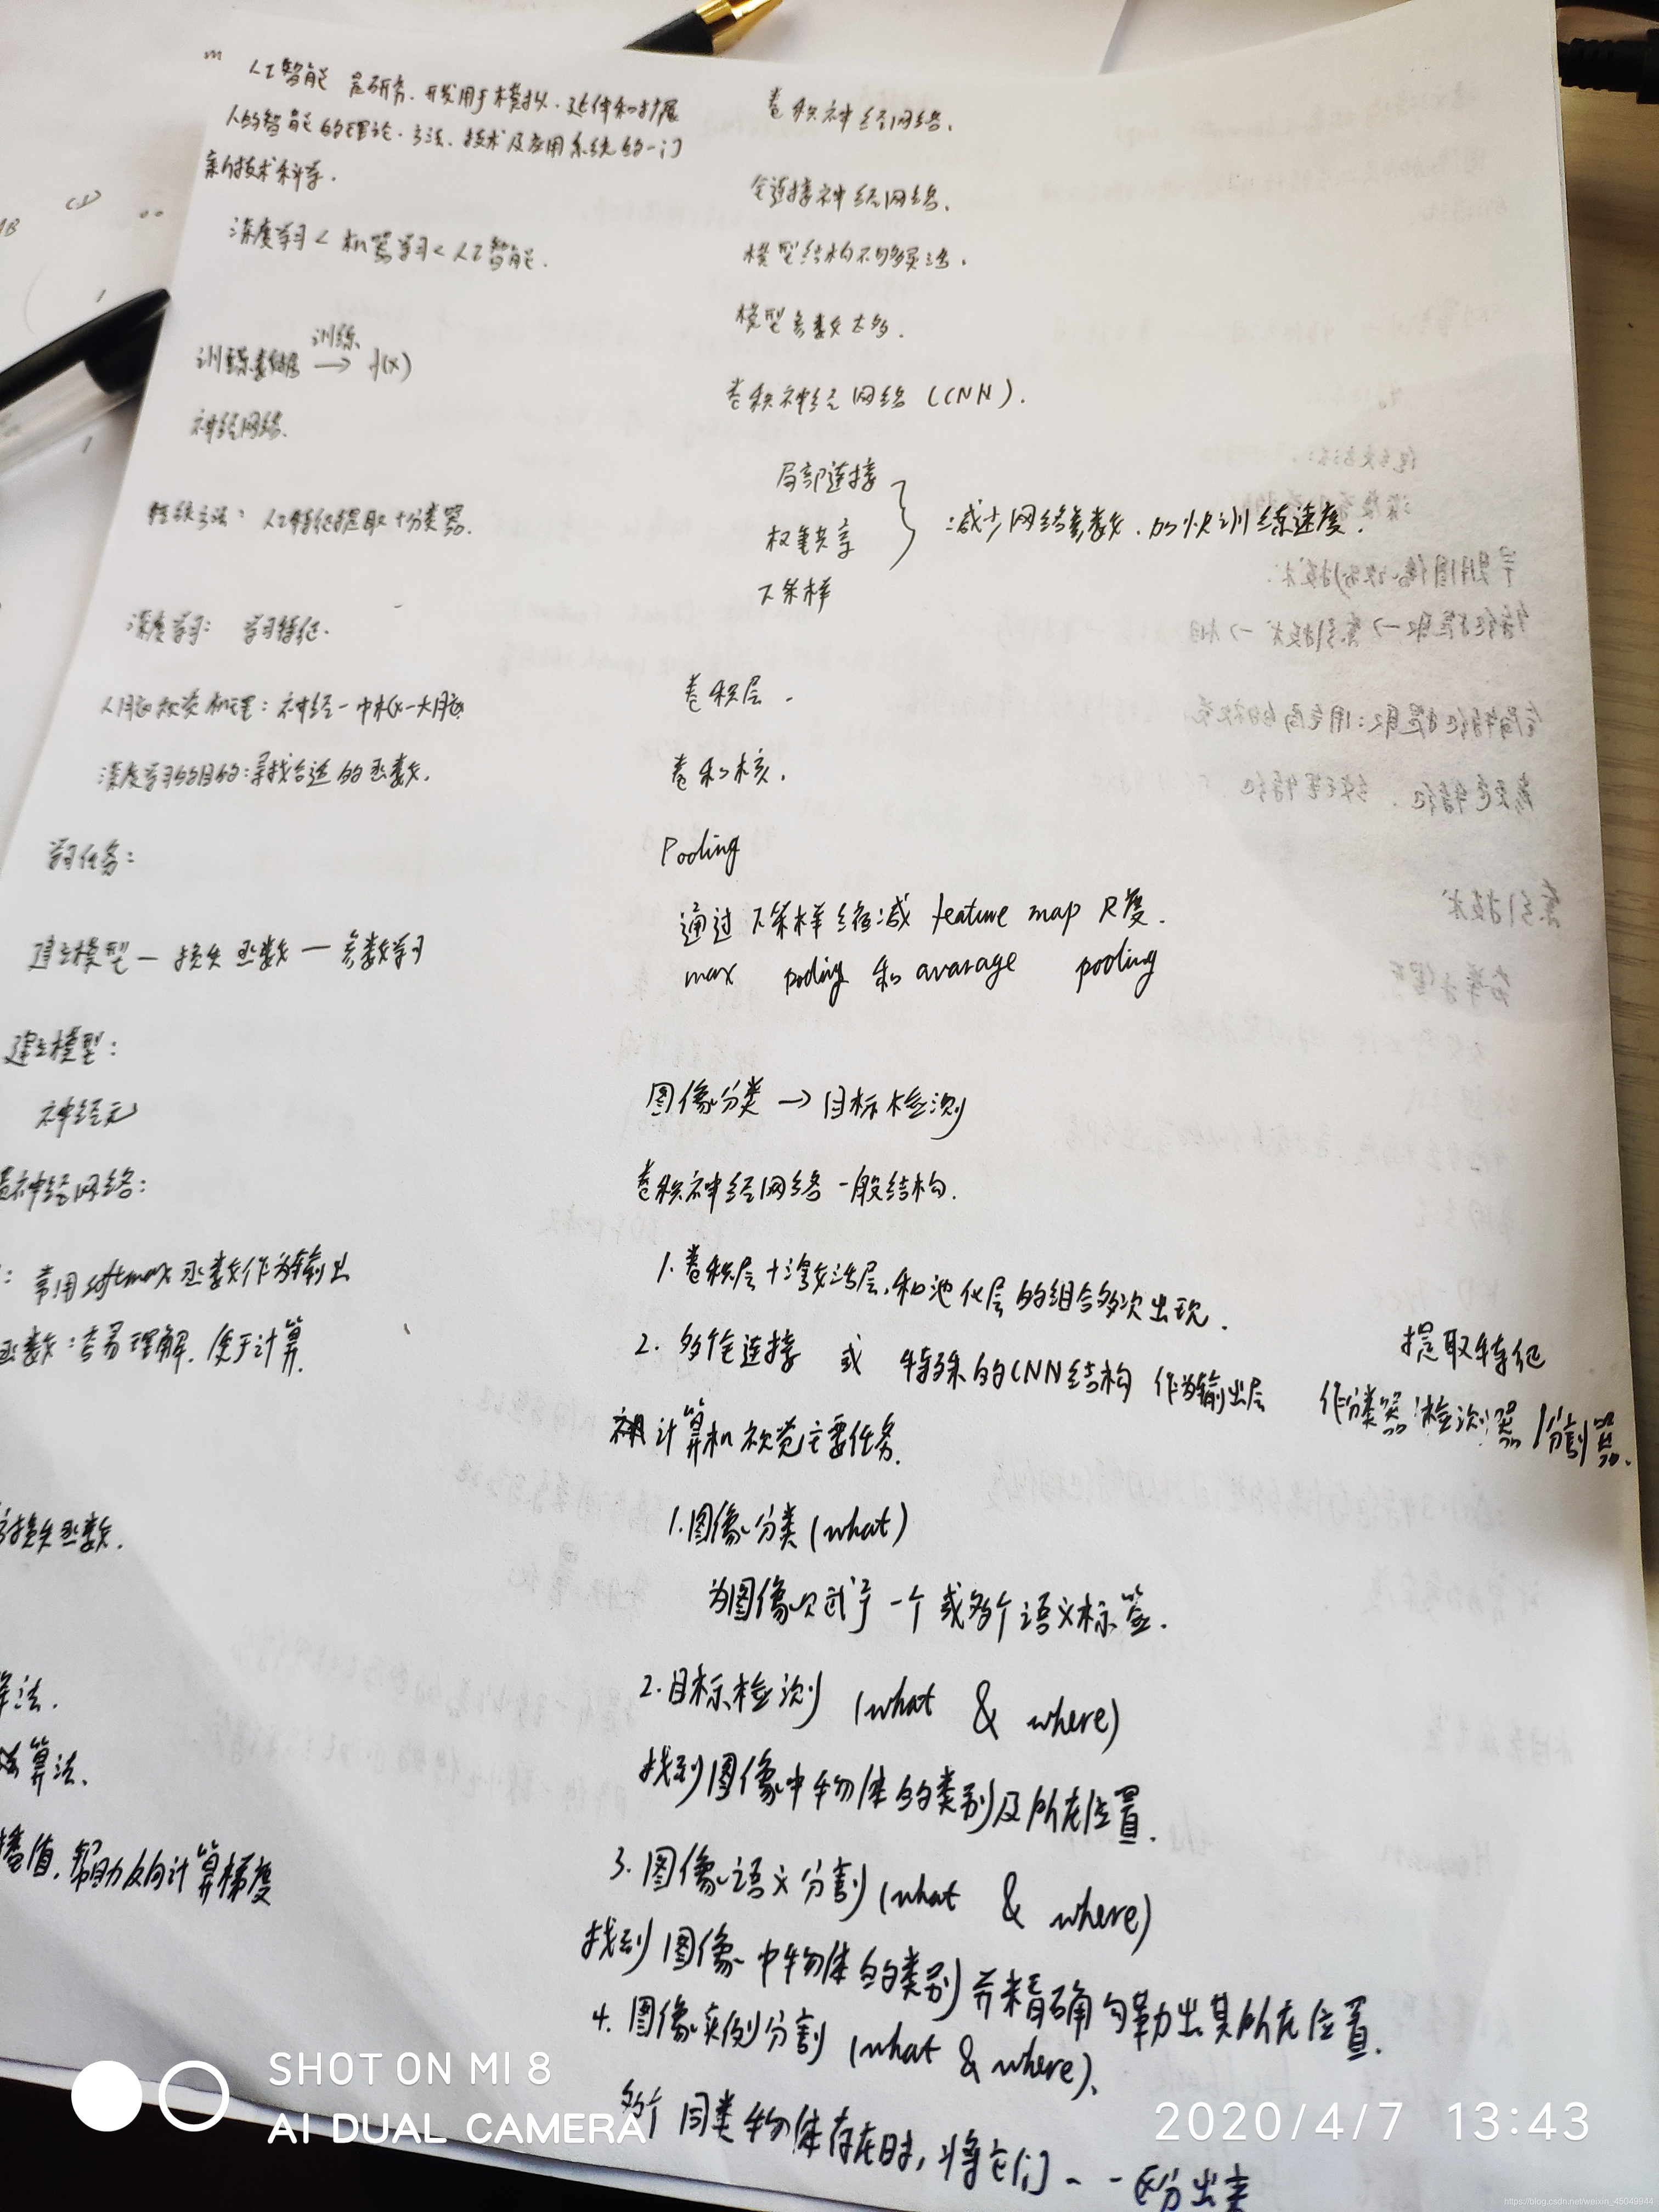 人工智能 是研究、开发用于模拟、延伸和扩展
人的智能的理论、方法、技术及应用系统的一门
新的技术科学.
深度学习 < 机器学习 < 人工智能.
训练
训练数据 → f(x)
神经网络.
传统方法: 人工特征提取 + 分类器.
深度学习: 学习特征.
人脑视觉机理: 神经-中枢-大脑
深度学习的目的: 寻找合适的函数.
学习任务:
建立模型 — 损失函数 — 参数学习
建立模型:
神经元
神经网络:
: 常用softmax函数作为输出
函数: 容易理解, 便于计算.
损失函数.
算法.
算法.
播值, 帮助反向计算梯度
卷积神经网络.
全连接神经网络.
模型结构不够灵活.
模型参数太多.
卷积神经网络 (CNN).
局部连接
权重共享
下采样
减少网络参数, 加快训练速度.
卷积层.
卷积核.
Pooling
通过下采样缩减 feature map 尺度.
max pooling 和 avarage pooling
图像分类 → 目标检测
卷积神经网络一般结构.
1. 卷积层+激活层, 和池化层的组合多次出现.
提取特征
2. 多全连接 或 特殊的CNN结构 作为输出层 作分类器/检测器/分割器.
计算机视觉主要任务.
1. 图像分类 (what)
为图像赋予一个或多个语义标签.
2. 目标检测 (what & where)
找到图像中物体的类别及所在位置.
3. 图像语义分割 (what & where)
找到图像中物体的类别并精确勾勒出其所在位置.
4. 图像实例分割 (what & where).
多个同类物体存在时, 将它们一一区分出来
SHOT ON MI 8
AI DUAL CAMERA
2020/4/7 13:43
https://blog.csdn.net/weixin_45049944